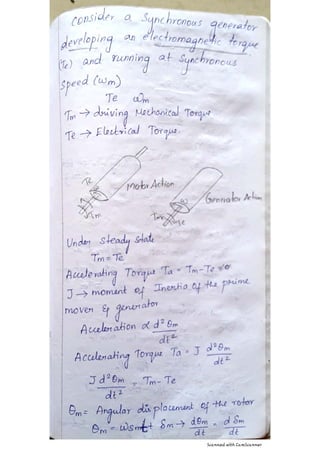 Consider a Synchronous generator
developing an electromagnetic torque
(Te) and running at Synchronous
Speed (ωm)
Te ωm
Tm → driving Mechanical Torque
Te → Electrical Torque.
Te
Tm
Motor Action
Tm
ω
Te
Generator Action
Under steady state
Tm = Te
Accelerating Torque Ta = Tm - Te = 0
J → moment of Inertia of the prime
mover & generator
Acceleration α d²θm/dt²
Accelerating Torque Ta = J d²θm/dt²
J d²θm/dt² = Tm - Te
θm = Angular displacement of the rotor
θm = ωsmt + δm → dθm/dt = dδm/dt
Scanned with CamScanner